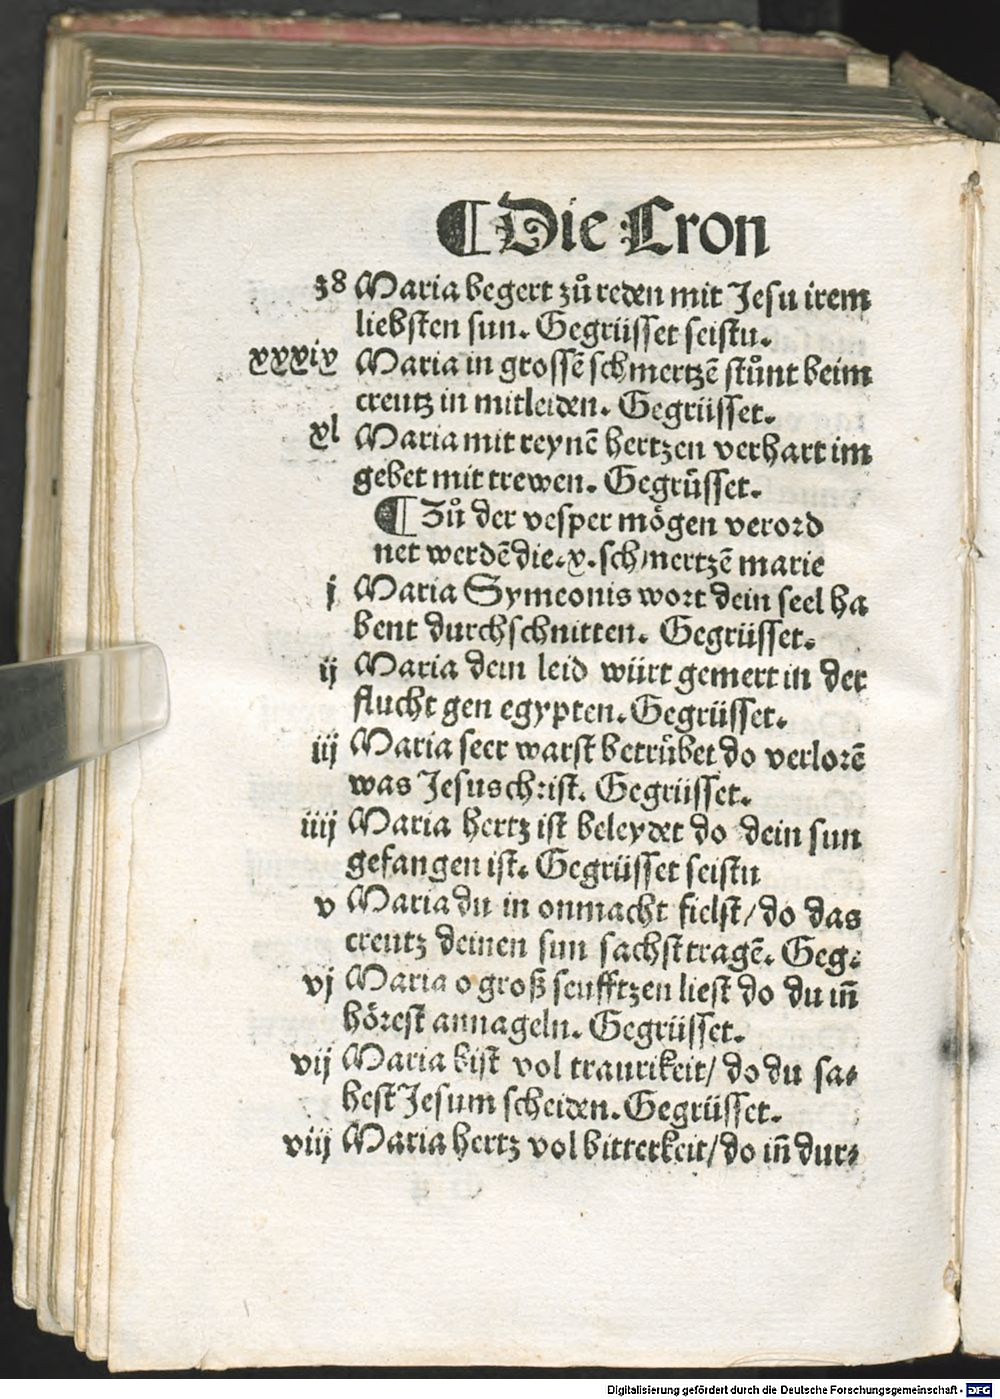 ¶ Die Cron
38 Maria begert zů reden mit Jesu irem
liebsten sun. Gegrüsset seistu.
xxxix Maria in grossē schmertzē stůnt beim
creutz in mitleiden. Gegrüsset.
xl Maria mit reynē hertzen verhart im
gebet mit trewen. Gegrüsset.
¶ Zů der vesper mögen verord
net werdē die.x.schmertzē marie
j Maria Symeonis wort dein seel ha
bent durchschnitten. Gegrüsset.
ij Maria dein leid würt gemert in der
flucht gen egypten. Gegrüsset.
iij Maria seer warst betrübet do verlorē
was Jesus christ. Gegrüsset.
iiij Maria hertz ist beleydet do dein sun
gefangen ist. Gegrüsset seistu
v Maria du in onmacht fielst/do das
creutz deinen sun sachst tragē. Geg.
vj Maria o groß seufftzen liest do du in̄
hörest annageln. Gegrüsset.
vij Maria bist vol traurikeit/do du sa⸗
hest Jesum scheiden. Gegrüsset.
viij Maria hertz vol bitterkeit/do in̄ dur⸗
Digitalisierung gefördert durch die Deutsche Forschungsgemeinschaft - DFG